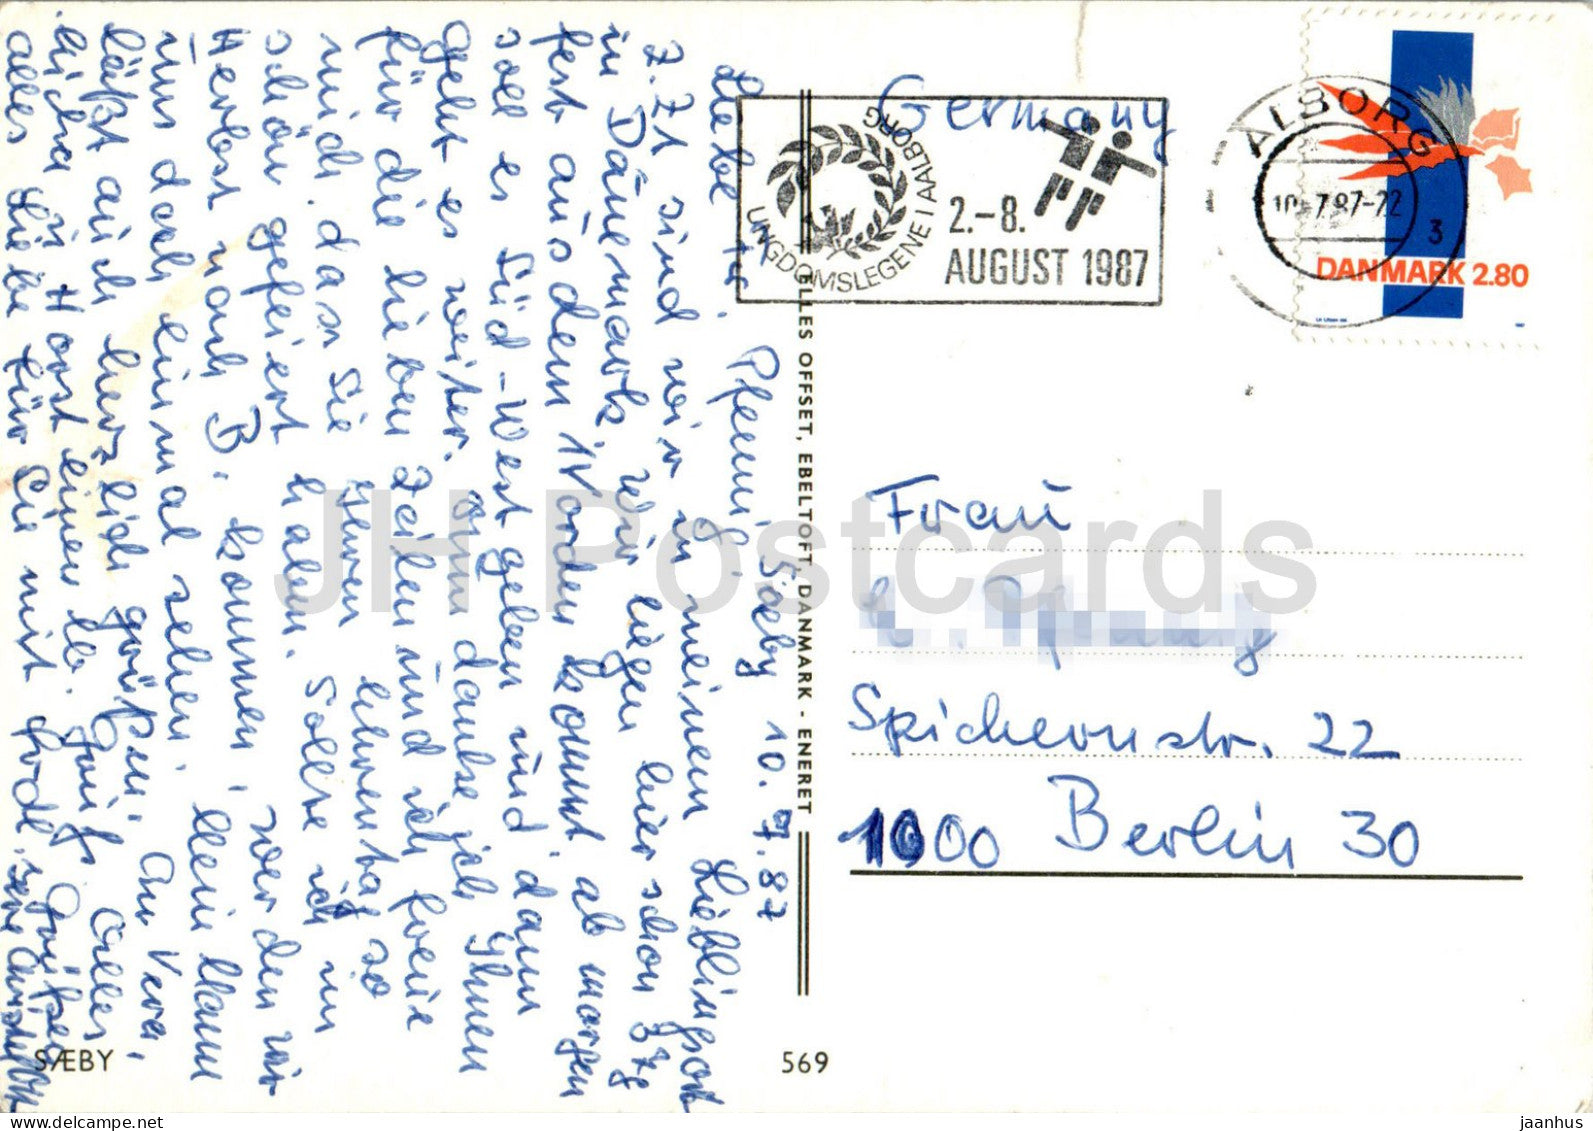 Liebe Fr. Pfennig! Saeby 10.7.87
Z.Zt sind wir in meinem Lieblingsort
in Dänemark. Wir liegen hier schon 3 Tg
fest aus dem Norden kommt. ab morgen
soll es Süd-West geben und dann
geht es weiter. Ganz danke ich Ihnen
für die lieben Zeilen und ich freue
mich, dass Sie Ihren Ehrentag so
schön gefeiert haben. Sollte ich im
Herbst nach B. kommen, werden wir
uns doch einmal sehen. Mein Mann
läßt auch herzlich grüßen. An Vera,
Micha u. Horst einen lb. Gruß. Alles
alles Liebe für Sie mit Grüßen
Germany
UNGDOMSLEGENE I AALBORG
2.-8.
AUGUST 1987
ALBORG
10-7.87-22
3
DANMARK 2.80
Frau
Spichernstr. 22
1000 Berlin 30
ELLES OFFSET, EBELTOFT, DANMARK - ENERET
SÆBY
569
JH Postcards
jaanhus
www.delcampe.net